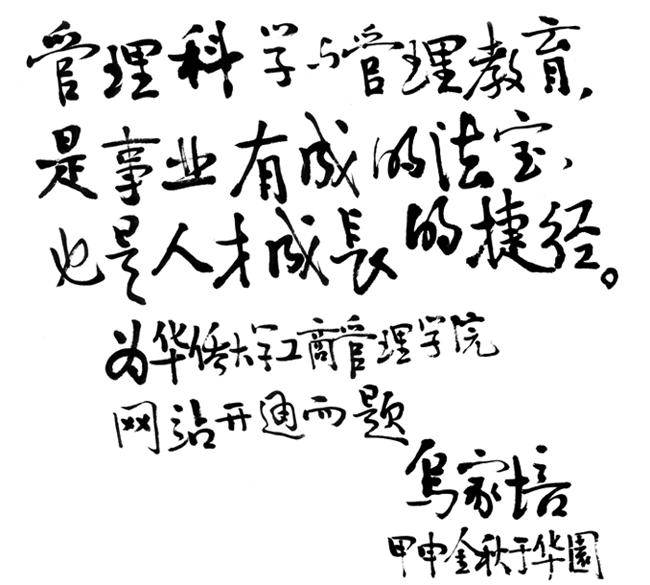 管理科学与管理教育，
是事业有成的法宝，
也是人才成長的捷径。
为华侨大学工商管理学院
网站开通而题
乌家培
甲申金秋于华園